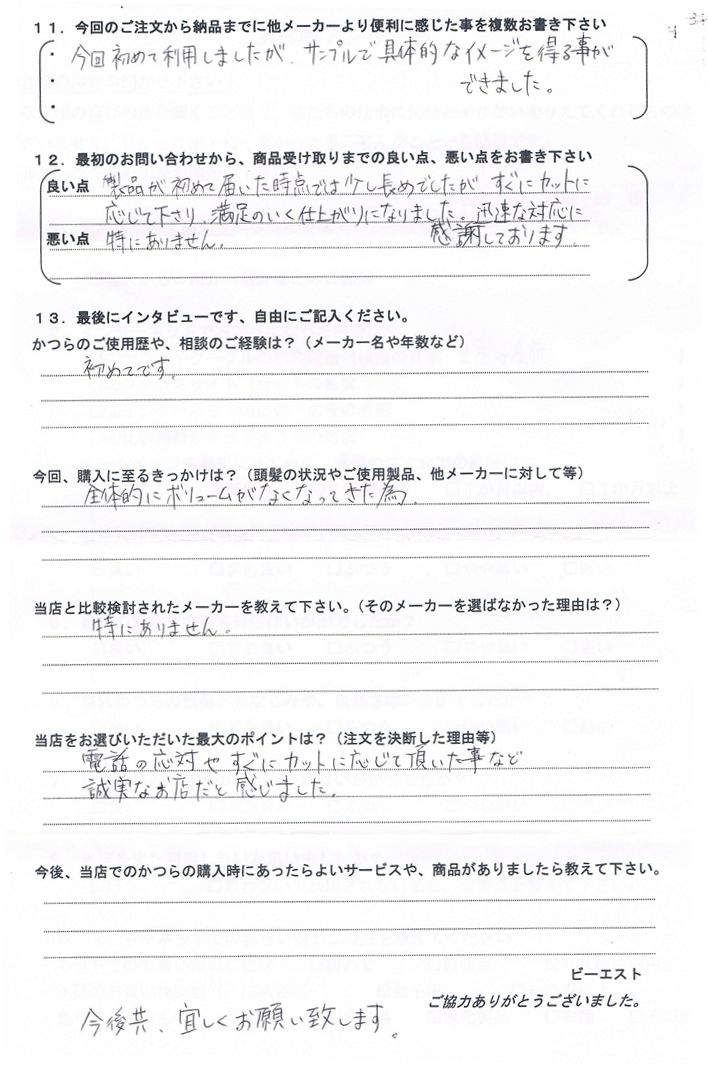 １１．今回のご注文から納品までに他メーカーより便利に感じた事を複数お書き下さい
・今回初めて利用しましたが、サンプルで具体的なイメージを得る事が
・できました。
・
１２．最初のお問い合わせから、商品受け取りまでの良い点、悪い点をお書き下さい
良い点 製品が初めて届いた時点では少し長めでしたが、すぐにカットに
応じて下さり、満足のいく仕上がりになりました。迅速な対応に
悪い点 特にありません。 感謝しております。
１３．最後にインタビューです、自由にご記入ください。
かつらのご使用歴や、相談のご経験は？（メーカー名や年数など）
初めてです。
今回、購入に至るきっかけは？（頭髪の状況やご使用製品、他メーカーに対して等）
全体的にボリュームがなくなってきた為。
当店と比較検討されたメーカーを教えて下さい。（そのメーカーを選ばなかった理由は？）
特にありません。
当店をお選びいただいた最大のポイントは？（注文を決断した理由等）
電話の応対やすぐにカットに応じて頂いた事など
誠実なお店だと感じました。
今後、当店でのかつらの購入時にあったらよいサービスや、商品がありましたら教えて下さい。
ビーエスト
ご協力ありがとうございました。
今後共、宜しくお願い致します。